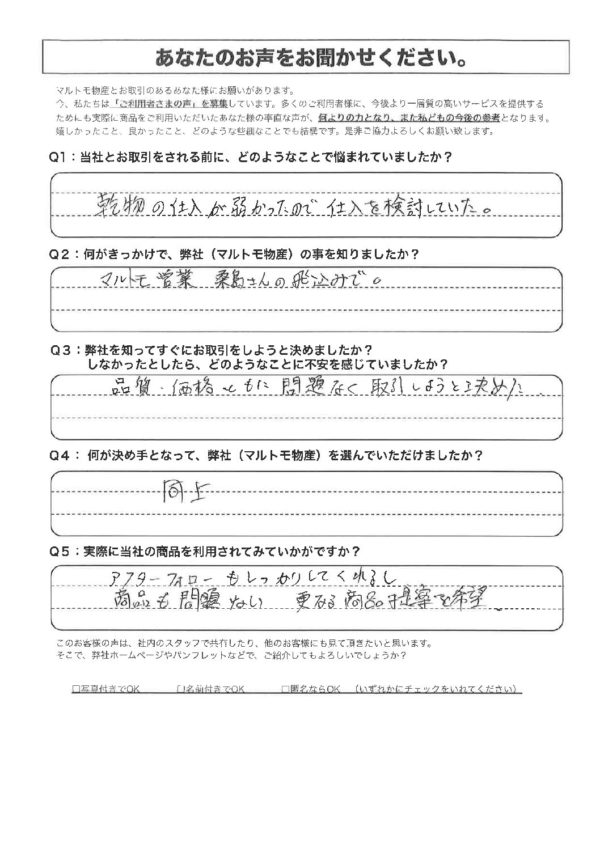 あなたのお声をお聞かせください。
マルトモ物産とお取引のあるあなた様にお願いがあります。
今、私たちは「ご利用者さまの声」を募集しています。多くのご利用者様に、今後より一層質の高いサービスを提供する
ためにも実際に商品をご利用いただいたあなた様の率直な声が、何よりの力となり、また私どもの今後の参考となります。
嬉しかったこと、良かったこと、どのような些細なことでも結構です。是非ご協力よろしくお願い致します。
Q1：当社とお取引をされる前に、どのようなことで悩まれていましたか？
乾物の仕入が弱かったので仕入を検討していた。
Q２：何がきっかけで、弊社（マルトモ物産）の事を知りましたか？
マルトモ営業 桑島さんの飛込みで。
Q３：弊社を知ってすぐにお取引をしようと決めましたか？
しなかったとしたら、どのようなことに不安を感じていましたか？
品質・価格ともに問題なく取引しようと決めた
Q４： 何が決め手となって、弊社（マルトモ物産）を選んでいただけましたか？
同上
Q５：実際に当社の商品を利用されてみていかがですか？
アフターフォローもしっかりしてくれるし
商品も問題ない 更なる商品の提案を希望
このお客様の声は、社内のスタッフで共有したり、他のお客様にも見て頂きたいと思います。
そこで、弊社ホームページやパンフレットなどで、ご紹介してもよろしいでしょうか？
□写真付きでOK □名前付きでOK □匿名ならOK （いずれかにチェックをいれてください）